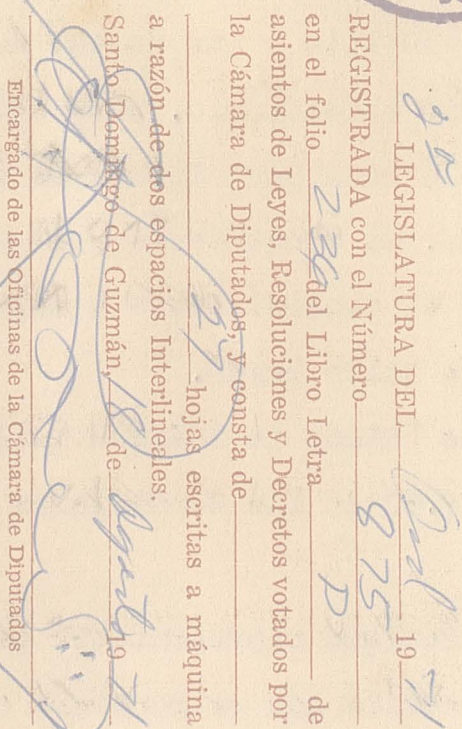 2a LEGISLATURA DEL Ord 1971
REGISTRADA con el Número 875
en el folio 236 del Libro Letra D de
asientos de Leyes, Resoluciones y Decretos votados por
la Cámara de Diputados, y consta de
hojas escritas a máquina
a razón de dos espacios Interlineales.
Santo Domingo de Guzmán, 18 de Agosto 1971
Encargado de las Oficinas de la Cámara de Diputados